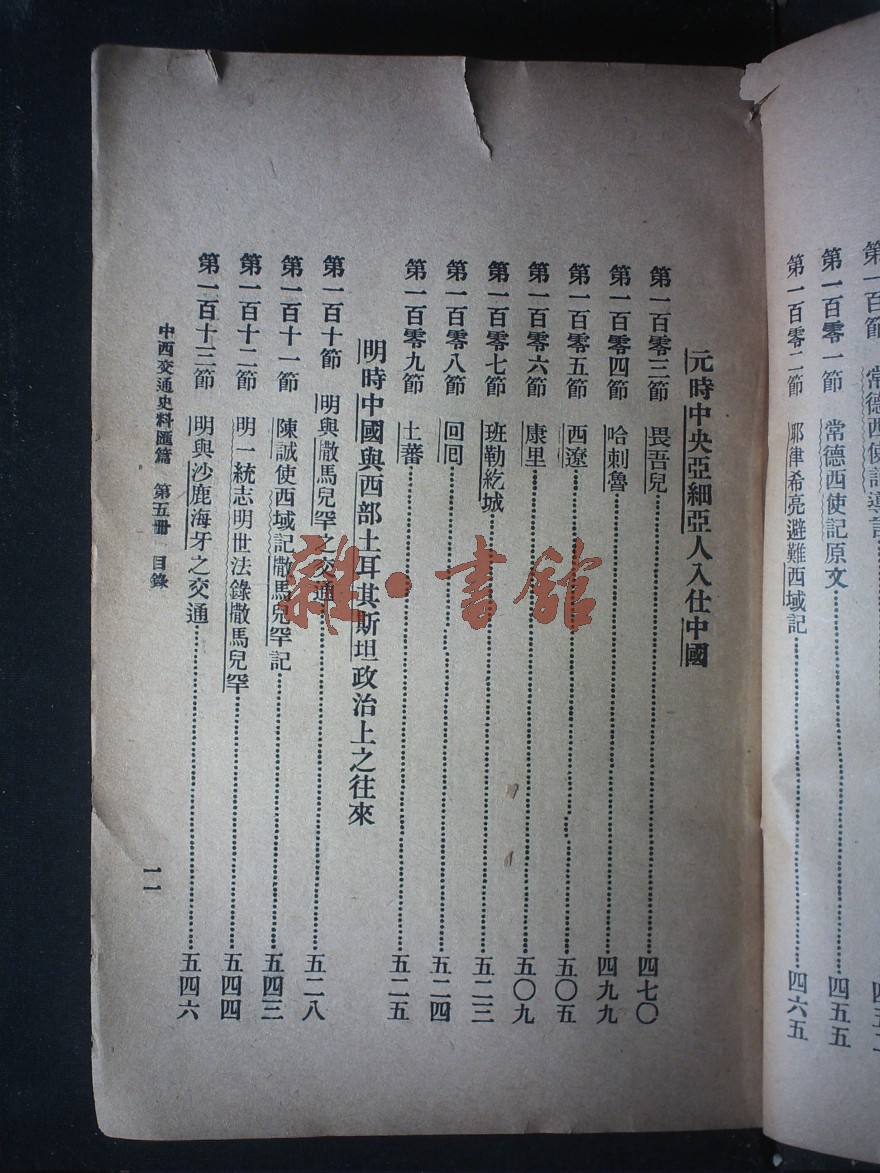 第一百節 常德西使記導言
第一百零一節 常德西使記原文……四五五
第一百零二節 耶律希亮避難西域記……四六五
元時中央亞細亞人入仕中國
第一百零三節 畏吾兒……四七〇
第一百零四節 哈剌魯……四九九
第一百零五節 西遼……五〇五
第一百零六節 康里……五〇九
第一百零七節 班勒紇城……五二三
第一百零八節 回回……五二四
第一百零九節 土蕃……五二五
明時中國與西部土耳其斯坦政治上之往來
第一百十節 明與撒馬兒罕之交通……五二八
第一百十一節 陳誠使西域記撒馬兒罕記……五四三
第一百十二節 明一統志明世法錄撒馬兒罕……五四四
第一百十三節 明與沙鹿海牙之交通……五四六
中西交通史料匯篇 第五冊 目錄
一一
雜·書館